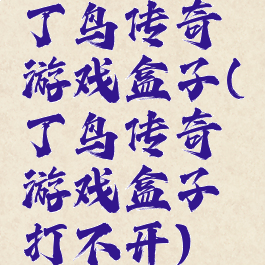 丁鸟传奇
游戏盒子(
丁鸟传奇
游戏盒子
打不开)